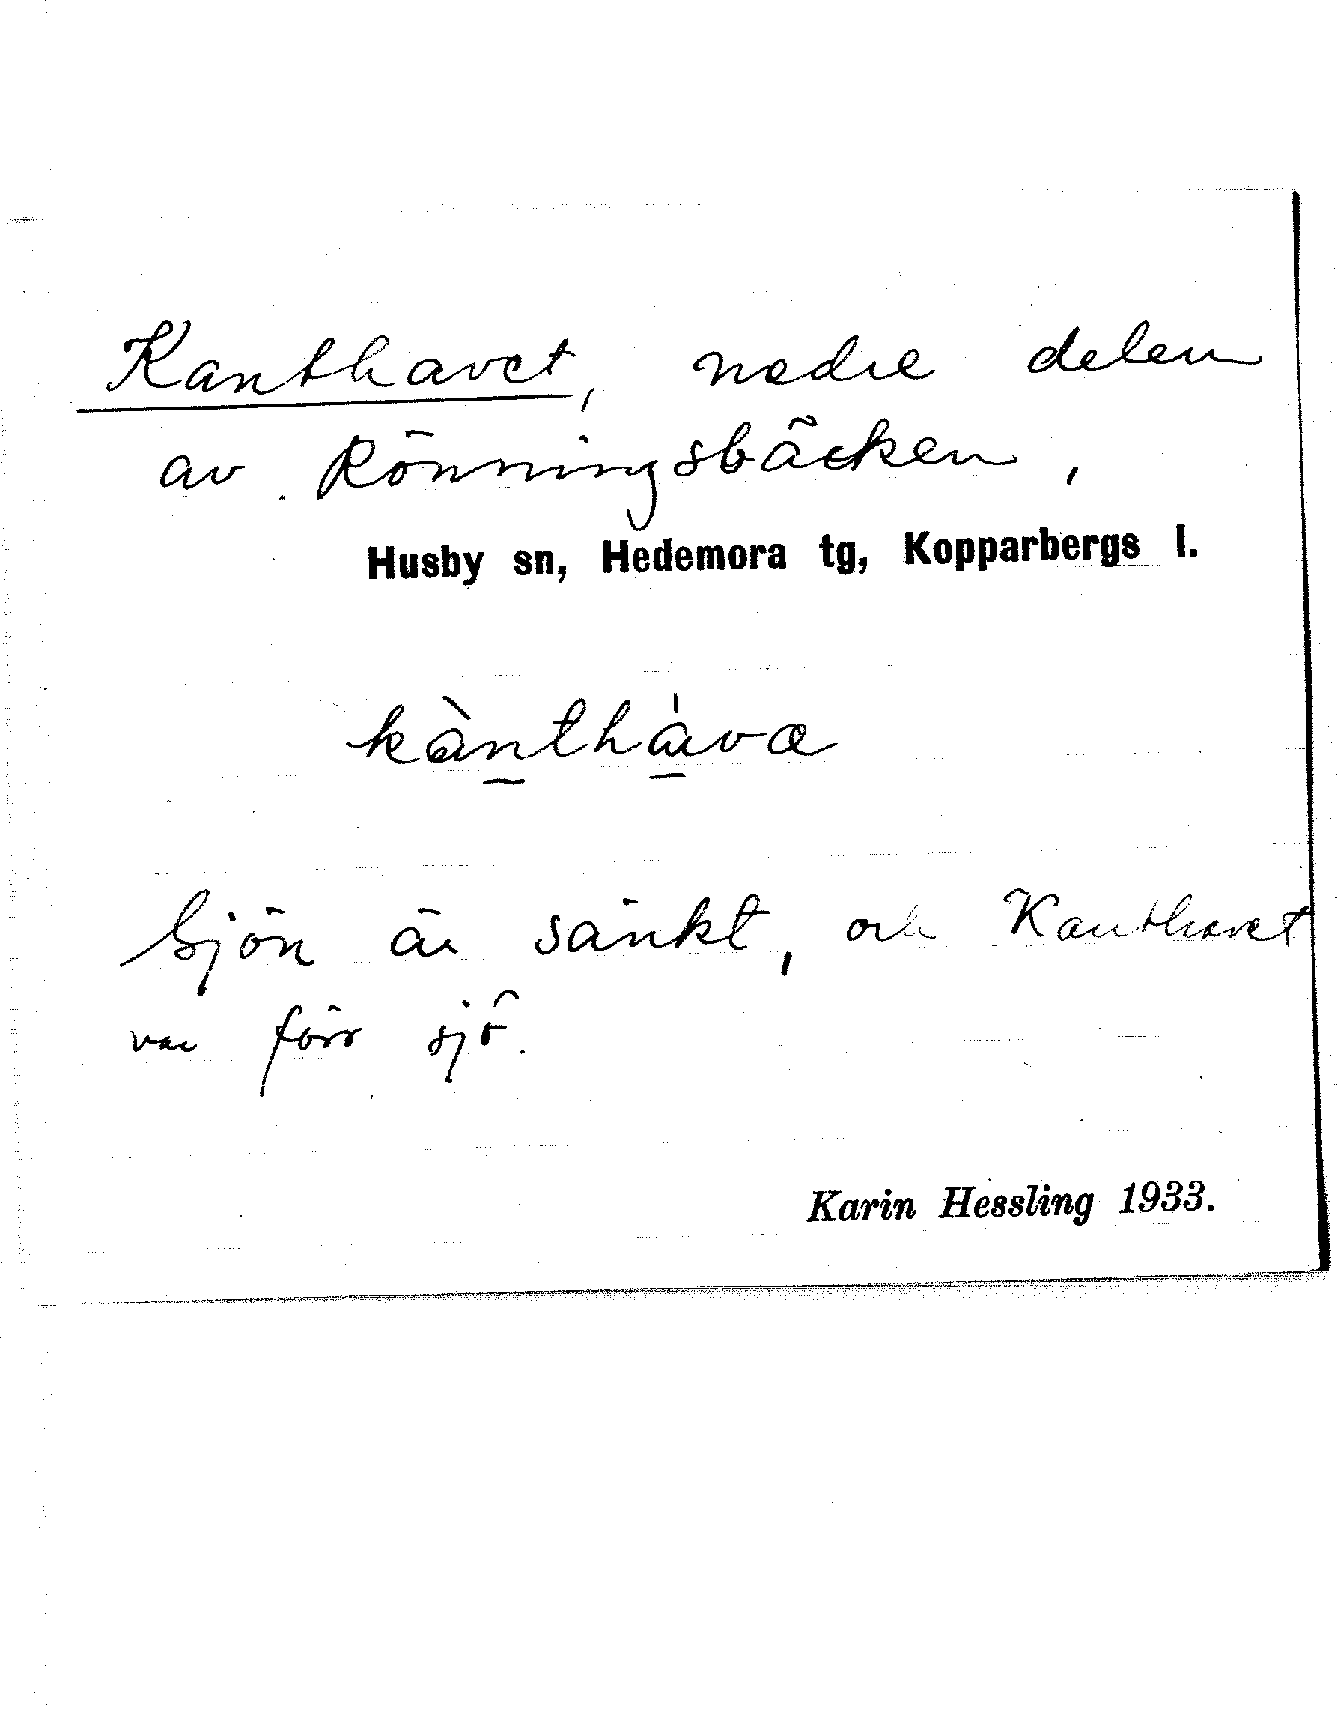 Kanthavet, nedre delen
av Rönningsbäcken,
Husby sn, Hedemora tg, Kopparbergs l.
kàn̲thà̲væ
Sjön är sänkt, och Kanthavet
var förr sjö.
Karin Hessling 1933.